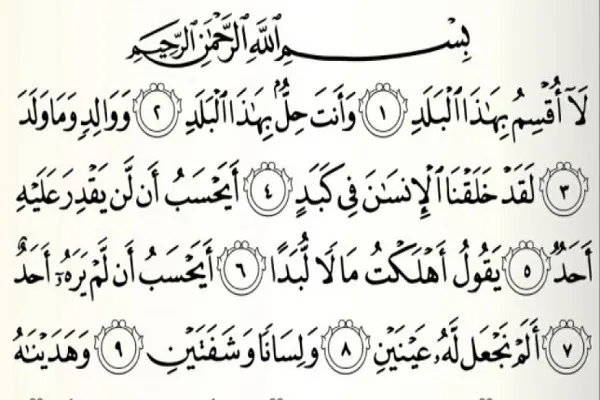 بِسْمِ ٱللَّهِ ٱلرَّحْمَٰنِ ٱلرَّحِيمِ
لَآ أُقْسِمُ بِهَٰذَا ٱلْبَلَدِ ١ وَأَنتَ حِلٌّۢ بِهَٰذَا ٱلْبَلَدِ ٢ وَوَالِدٍ وَمَا وَلَدَ
٣ لَقَدْ خَلَقْنَا ٱلْإِنسَٰنَ فِى كَبَدٍ ٤ أَيَحْسَبُ أَن لَّن يَقْدِرَ عَلَيْهِ
أَحَدٌ ٥ يَقُولُ أَهْلَكْتُ مَالًا لُّبَدًا ٦ أَيَحْسَبُ أَن لَّمْ يَرَهُۥٓ أَحَدٌ
٧ أَلَمْ نَجْعَل لَّهُۥ عَيْنَيْنِ ٨ وَلِسَانًا وَشَفَتَيْنِ ٩ وَهَدَيْنَٰهُ